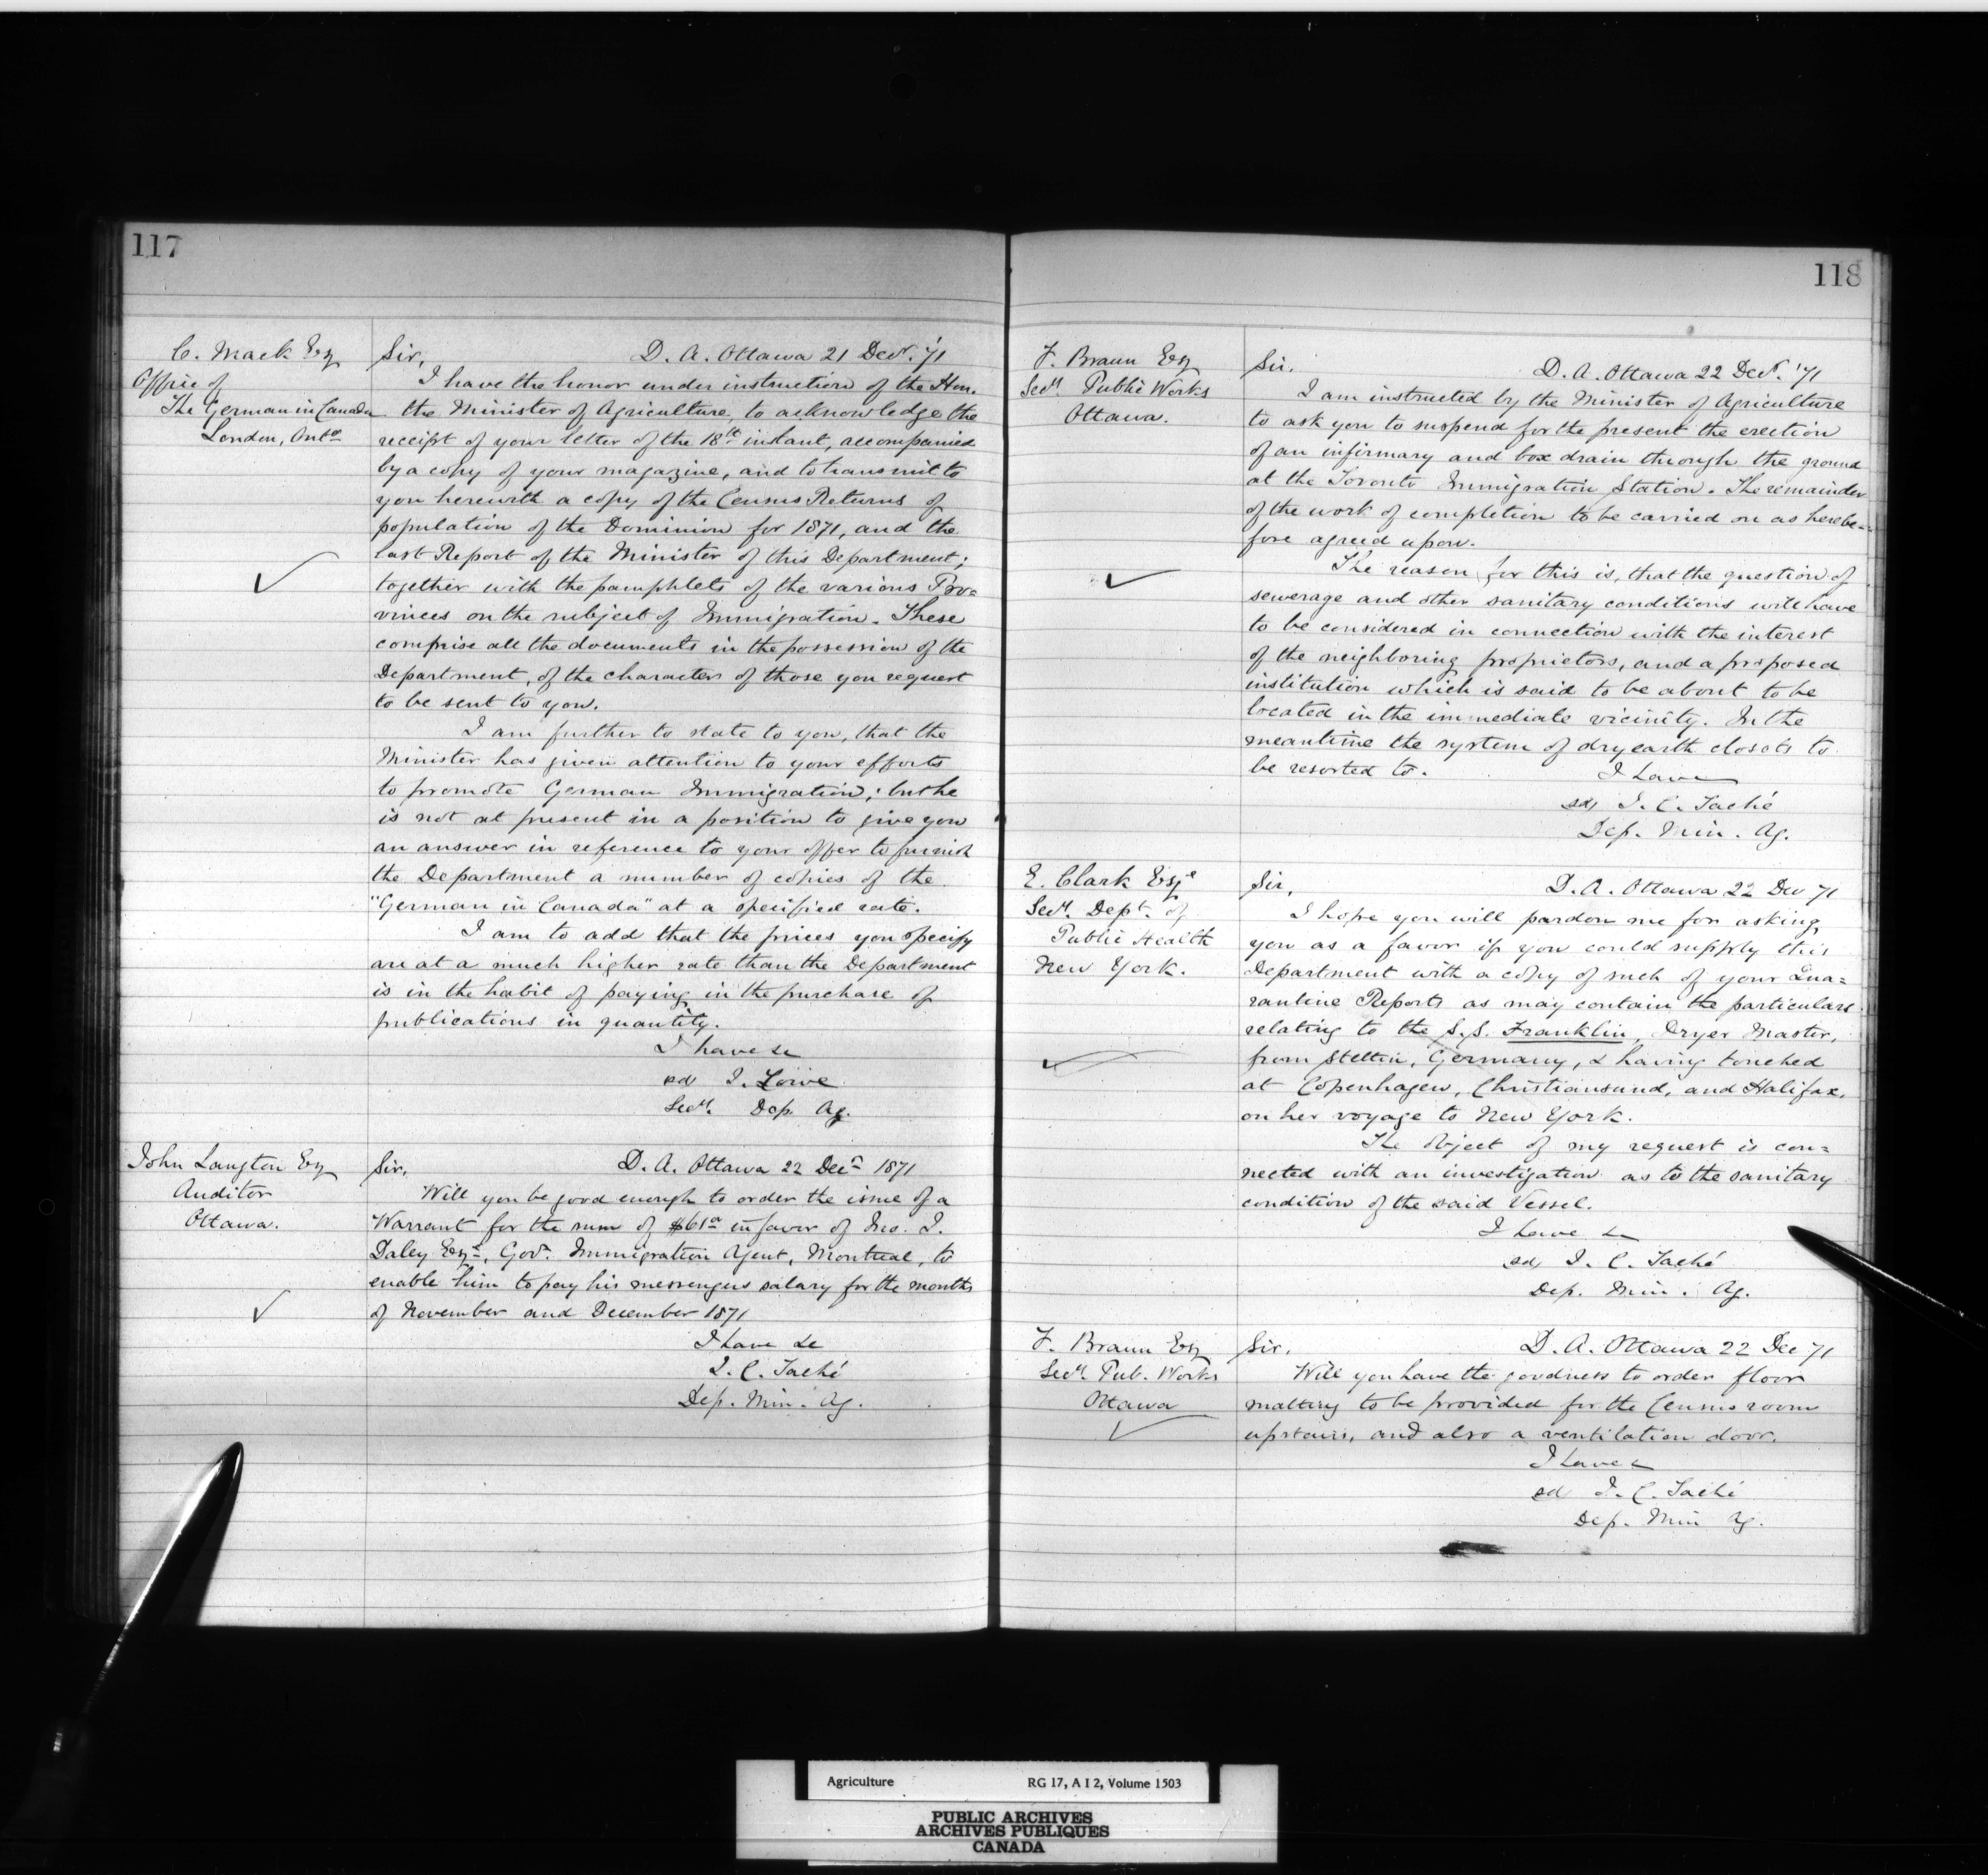 117
C. Mack Esq
Office of
The German in Canada
London, Onto
Sir, D. A. Ottawa 21 Decr. '71
I have the honor under instruction of the Hon.
the Minister of Agriculture, to acknowledge the
receipt of your letter of the 18th instant, accompanied
by a copy of your magazine, and to transmit to
you herewith a copy of the Census Returns of
population of the Dominion for 1871, and the
last Report of the Minister of this Department;
together with the pamphlets of the various Pro=
vinces on the subject of Immigration. These
comprise all the documents in the possession of the
Department, of the character of those you request
to be sent to you.
I am further to state to you, that the
Minister has given attention to your efforts
to promote German Immigration; but he
is not at present in a position to give you
an answer in reference to your offer to furnish
the Department a number of copies of the
"German in Canada" at a specified rate.
I am to add that the prices you specify
are at a much higher rate than the Department
is in the habit of paying in the purchase of
publications in quantity.
I have &c
sd J. Lowe
Secy. Dep. Ag.
John Langton Esq
Auditor
Ottawa.
Sir, D. A. Ottawa 22 Decr 1871
Will you be good enough to order the issue of a
Warrant for the sum of $61 in favor of Jno. J.
Daley Esqr, Govt. Immigration Agent, Montreal, to
enable him to pay his messengers salary for the months
of November and December 1871
I have &c
J. C. Taché
Dep. Min. Ag.
118
F. Braun Esq
Secy. Public Works
Ottawa.
Sir. D. A. Ottawa 22 Decr. '71
I am instructed by the Minister of Agriculture
to ask you to suspend for the present the erection
of an infirmary and box drain through the ground
at the Toronto Immigration Station. The remainder
of the work of completion to be carried on as herebe=
fore agreed upon.
The reason for this is, that the question of
sewerage and other sanitary conditions will have
to be considered in connection with the interest
of the neighboring proprietors, and a proposed
institution which is said to be about to be
located in the immediate vicinity. In the
meantime the system of dry earth closets to
be resorted to. I have
sd J. C. Taché
Dep. Min. Ag.
E. Clark Esqe
Secy. Dept. of
Public Health
New York.
Sir, D. A. Ottawa 22 Dec 71
I hope you will pardon me for asking
you as a favor if you could supply this
Department with a copy of such of your Qua=
rantine Reports as may contain the particulars
relating to the S.S. Franklin, Dryer Master,
from Stettin, Germany, & having touched
at Copenhagen, Christiansund, and Halifax,
on her voyage to New York.
The object of my request is con=
nected with an investigation as to the sanitary
condition of the said Vessel.
I have &c
sd J. C. Taché
Dep. Min. Ag.
F. Braun Esq
Secy. Pub. Works
Ottawa
Sir. D. A. Ottawa 22 Dec 71
Will you have the goodness to order floor
matting to be provided for the Census room
upstairs, and also a ventilation door.
I have &
sd J. C. Taché
Dep. Min Ag.
Agriculture RG 17, A I 2, Volume 1503
PUBLIC ARCHIVES
ARCHIVES PUBLIQUES
CANADA